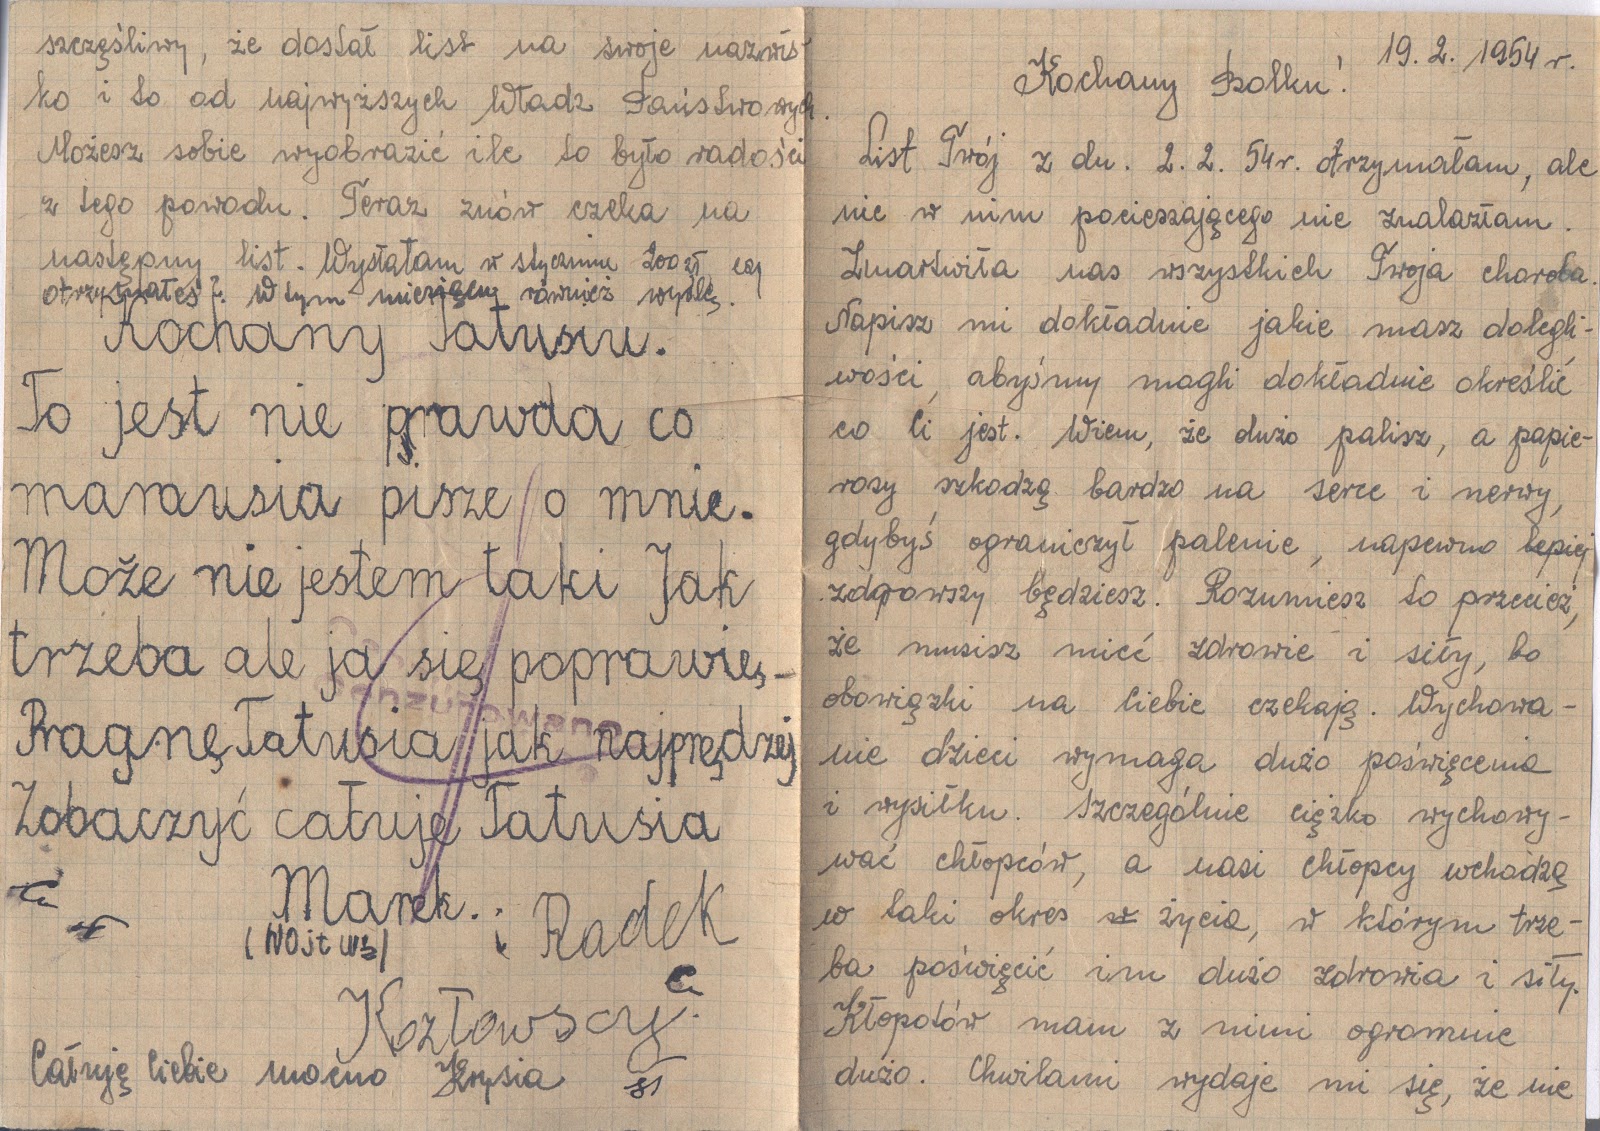 szczęśliwy, że dostał list na swoje nazwis
ko i to od najwyższych Władz Państwowych.
Możesz sobie wyobrazić ile to było radości
z tego powodu. Teraz znów czeka na
następny list. Wysłałam w styczniu 200 zł czy
otrzymałeś?. W tym miesiącu również wyślę.
Kochany Tatusiu.
To jest nie prawda co
marausia pisze o mnie.
Może nie jestem taki Jak
trzeba ale ja się poprawię-
Pragnę Tatusia jak najprędzej
Zobaczyć całuję Tatusia
Marek. i Radek
(Wojtuś)
Kozłowscy.
Całuję Ciebie mocno Krysia
Ocenzurowano
19. 2. 1954 r.
Kochany Bolku!
List Twój z dn. 2. 2. 54r. otrzymałam, ale
nic w nim pocieszającego nie znalazłam.
Zmartwiła nas wszystkich Twoja choroba.
Napisz mi dokładnie jakie masz dolegli-
wości, abyśmy mogli dokładnie określić
co Ci jest. Wiem, że dużo palisz, a papie-
rosy szkodzą bardzo na serce i nerwy,
gdybyś ograniczył palenie, napewno lepiej
zdrowszy będziesz. Rozumiesz to przecież,
że musisz mieć zdrowie i siły, bo
obowiązki na Ciebie czekają. Wychowa-
nie dzieci wymaga dużo poświęcenia
i wysiłku. Szczególnie ciężko wychowy-
wać chłopców, a nasi chłopcy wchodzą
w taki okres w życia, w którym trze-
ba poświęcić im dużo zdrowia i siły.
Kłopotów mam z nimi ogromnie
dużo. Chwilami wydaje mi się, że nie